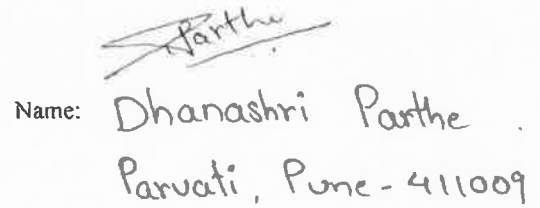 Parthe
Name: Dhanashri Parthe.
Parvati, Pune-411009